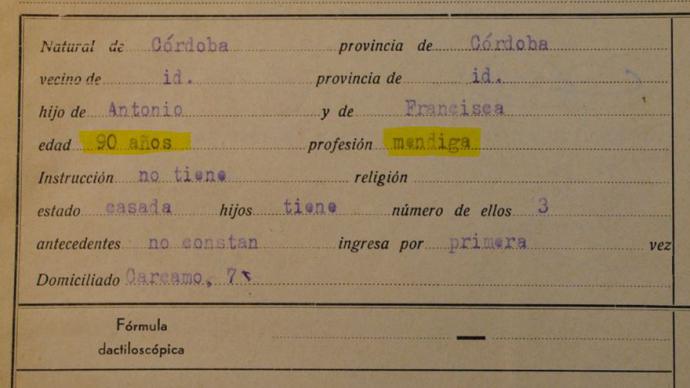 Natural de Córdoba provincia de Córdoba
vecino de id. provincia de id.
hijo de Antonio y de Francisca
edad 90 años profesión mendiga
Instrucción no tiene religión
estado casada hijos tiene número de ellos 3
antecedentes no constan ingresa por primera vez
Domiciliado Carcamo, 7
Fórmula
dactiloscópica